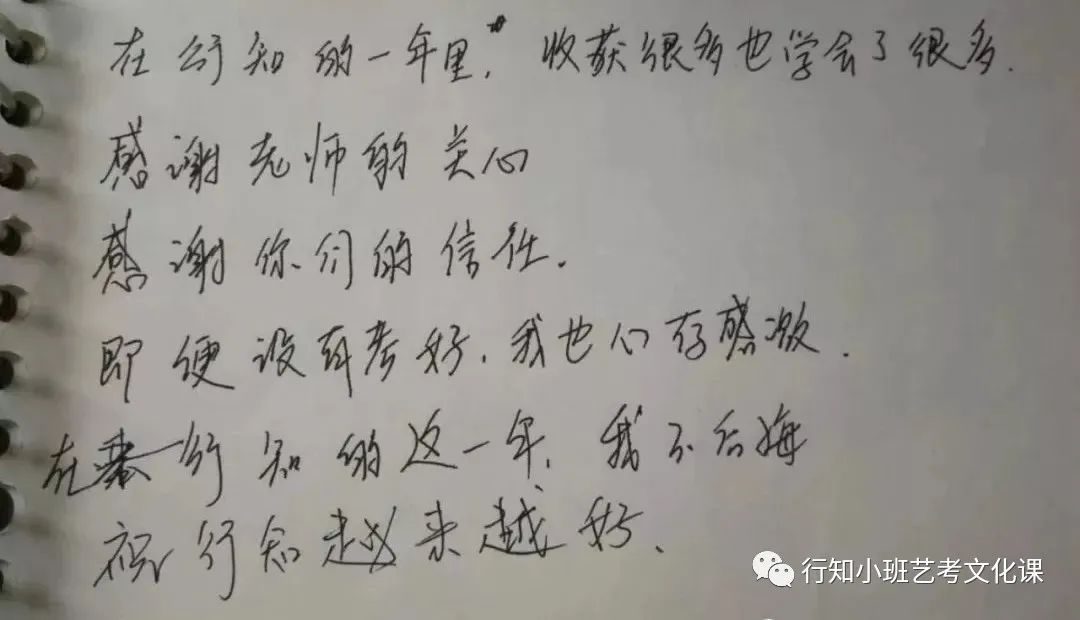 在行知的一年里，收获很多也学会了很多.
感谢老师的关心
感谢你们的信任.
即便没有考好，我也心存感激.
在行知的这一年，我不后悔
祝行知越来越好、
行知小班艺考文化课